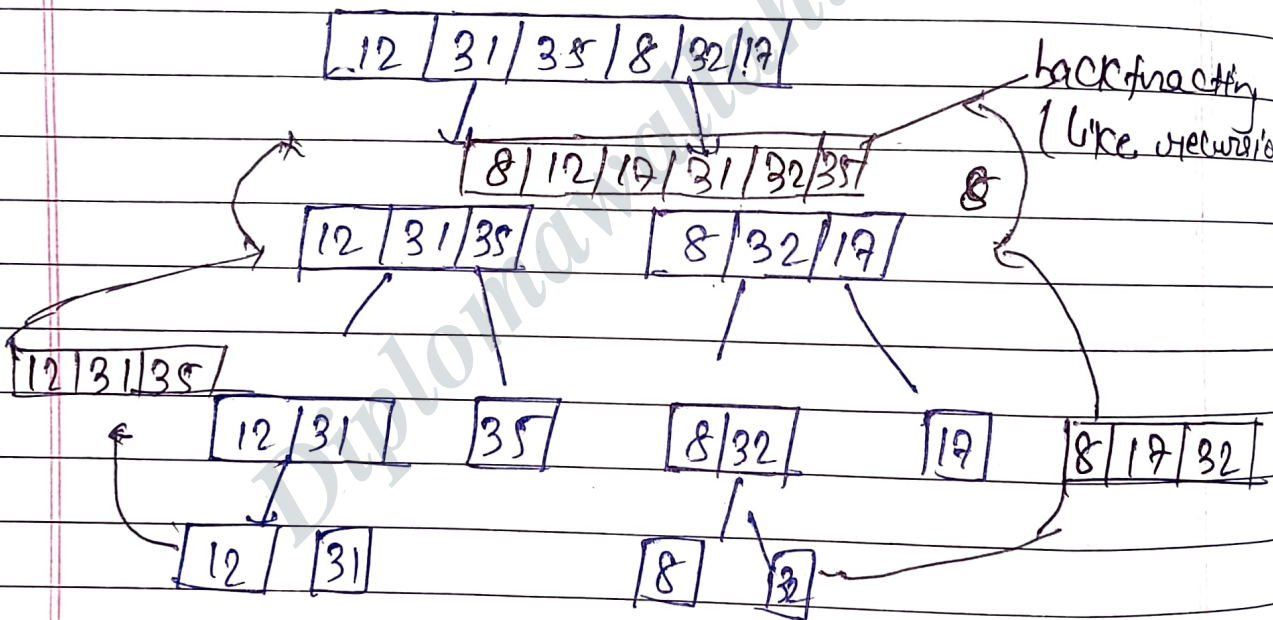 12 31 35 8 32 17
backtracting
(like recursio
8 12 17 31 32 35
8
12 31 35 8 32 17
12 31 35
12 31 35 8 32 17 8 17 32
12 31 8 32
Diplomawallah